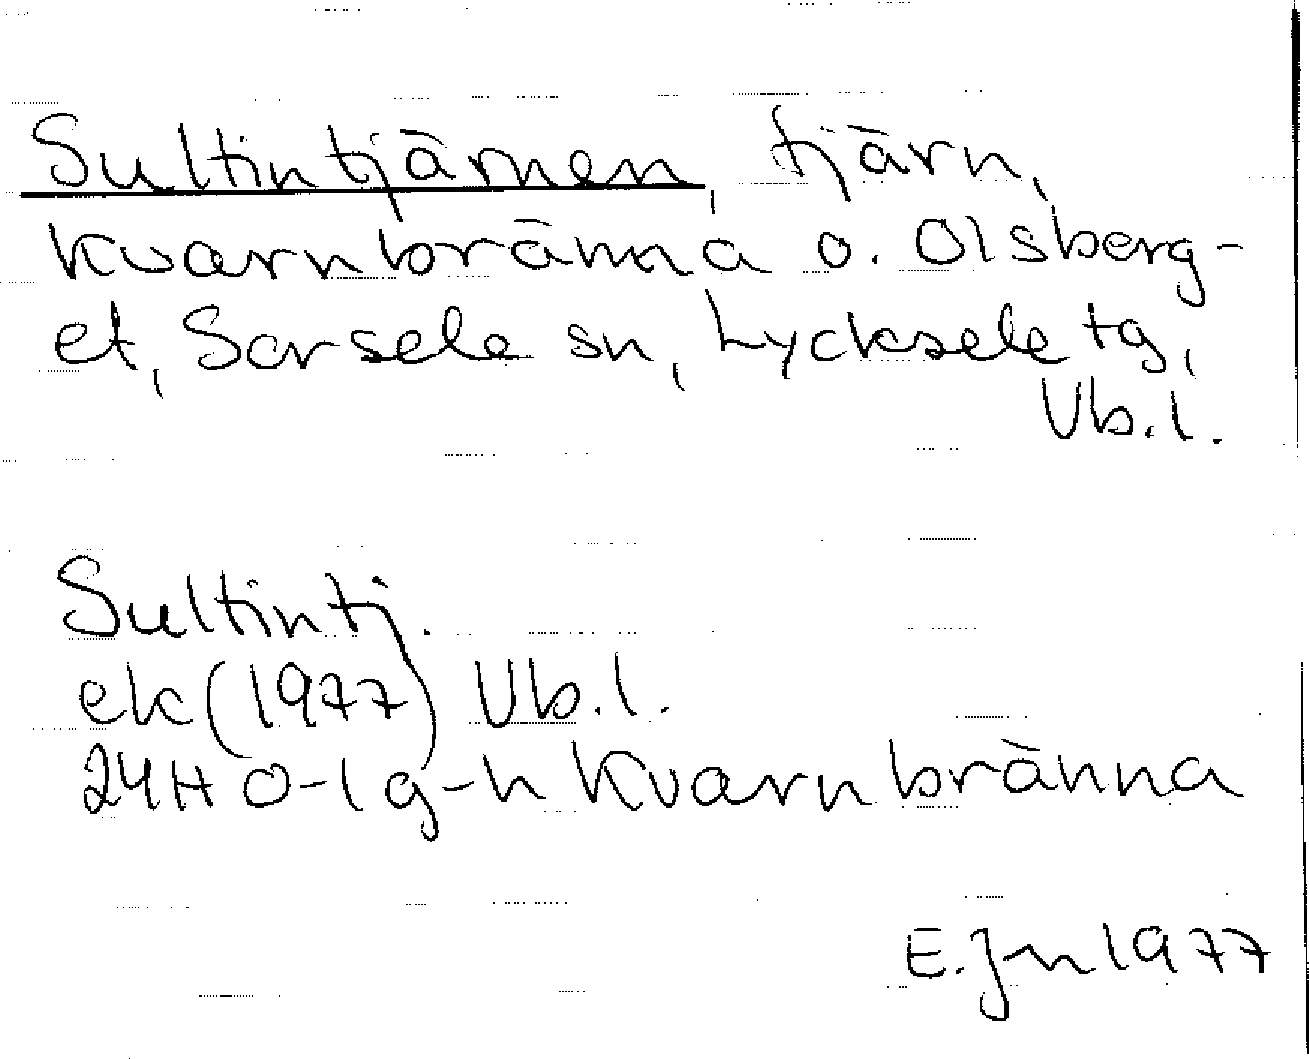 Sultintjärnen, tjärn,
Kvarnbränna o. Olsberg-
et, Sorsele sn, Lycksele tg,
Vb.l.
Sultintj.
ek (1977) Vb.l.
24H 0-1 g-h Kvarnbränna
E. Jn 1977